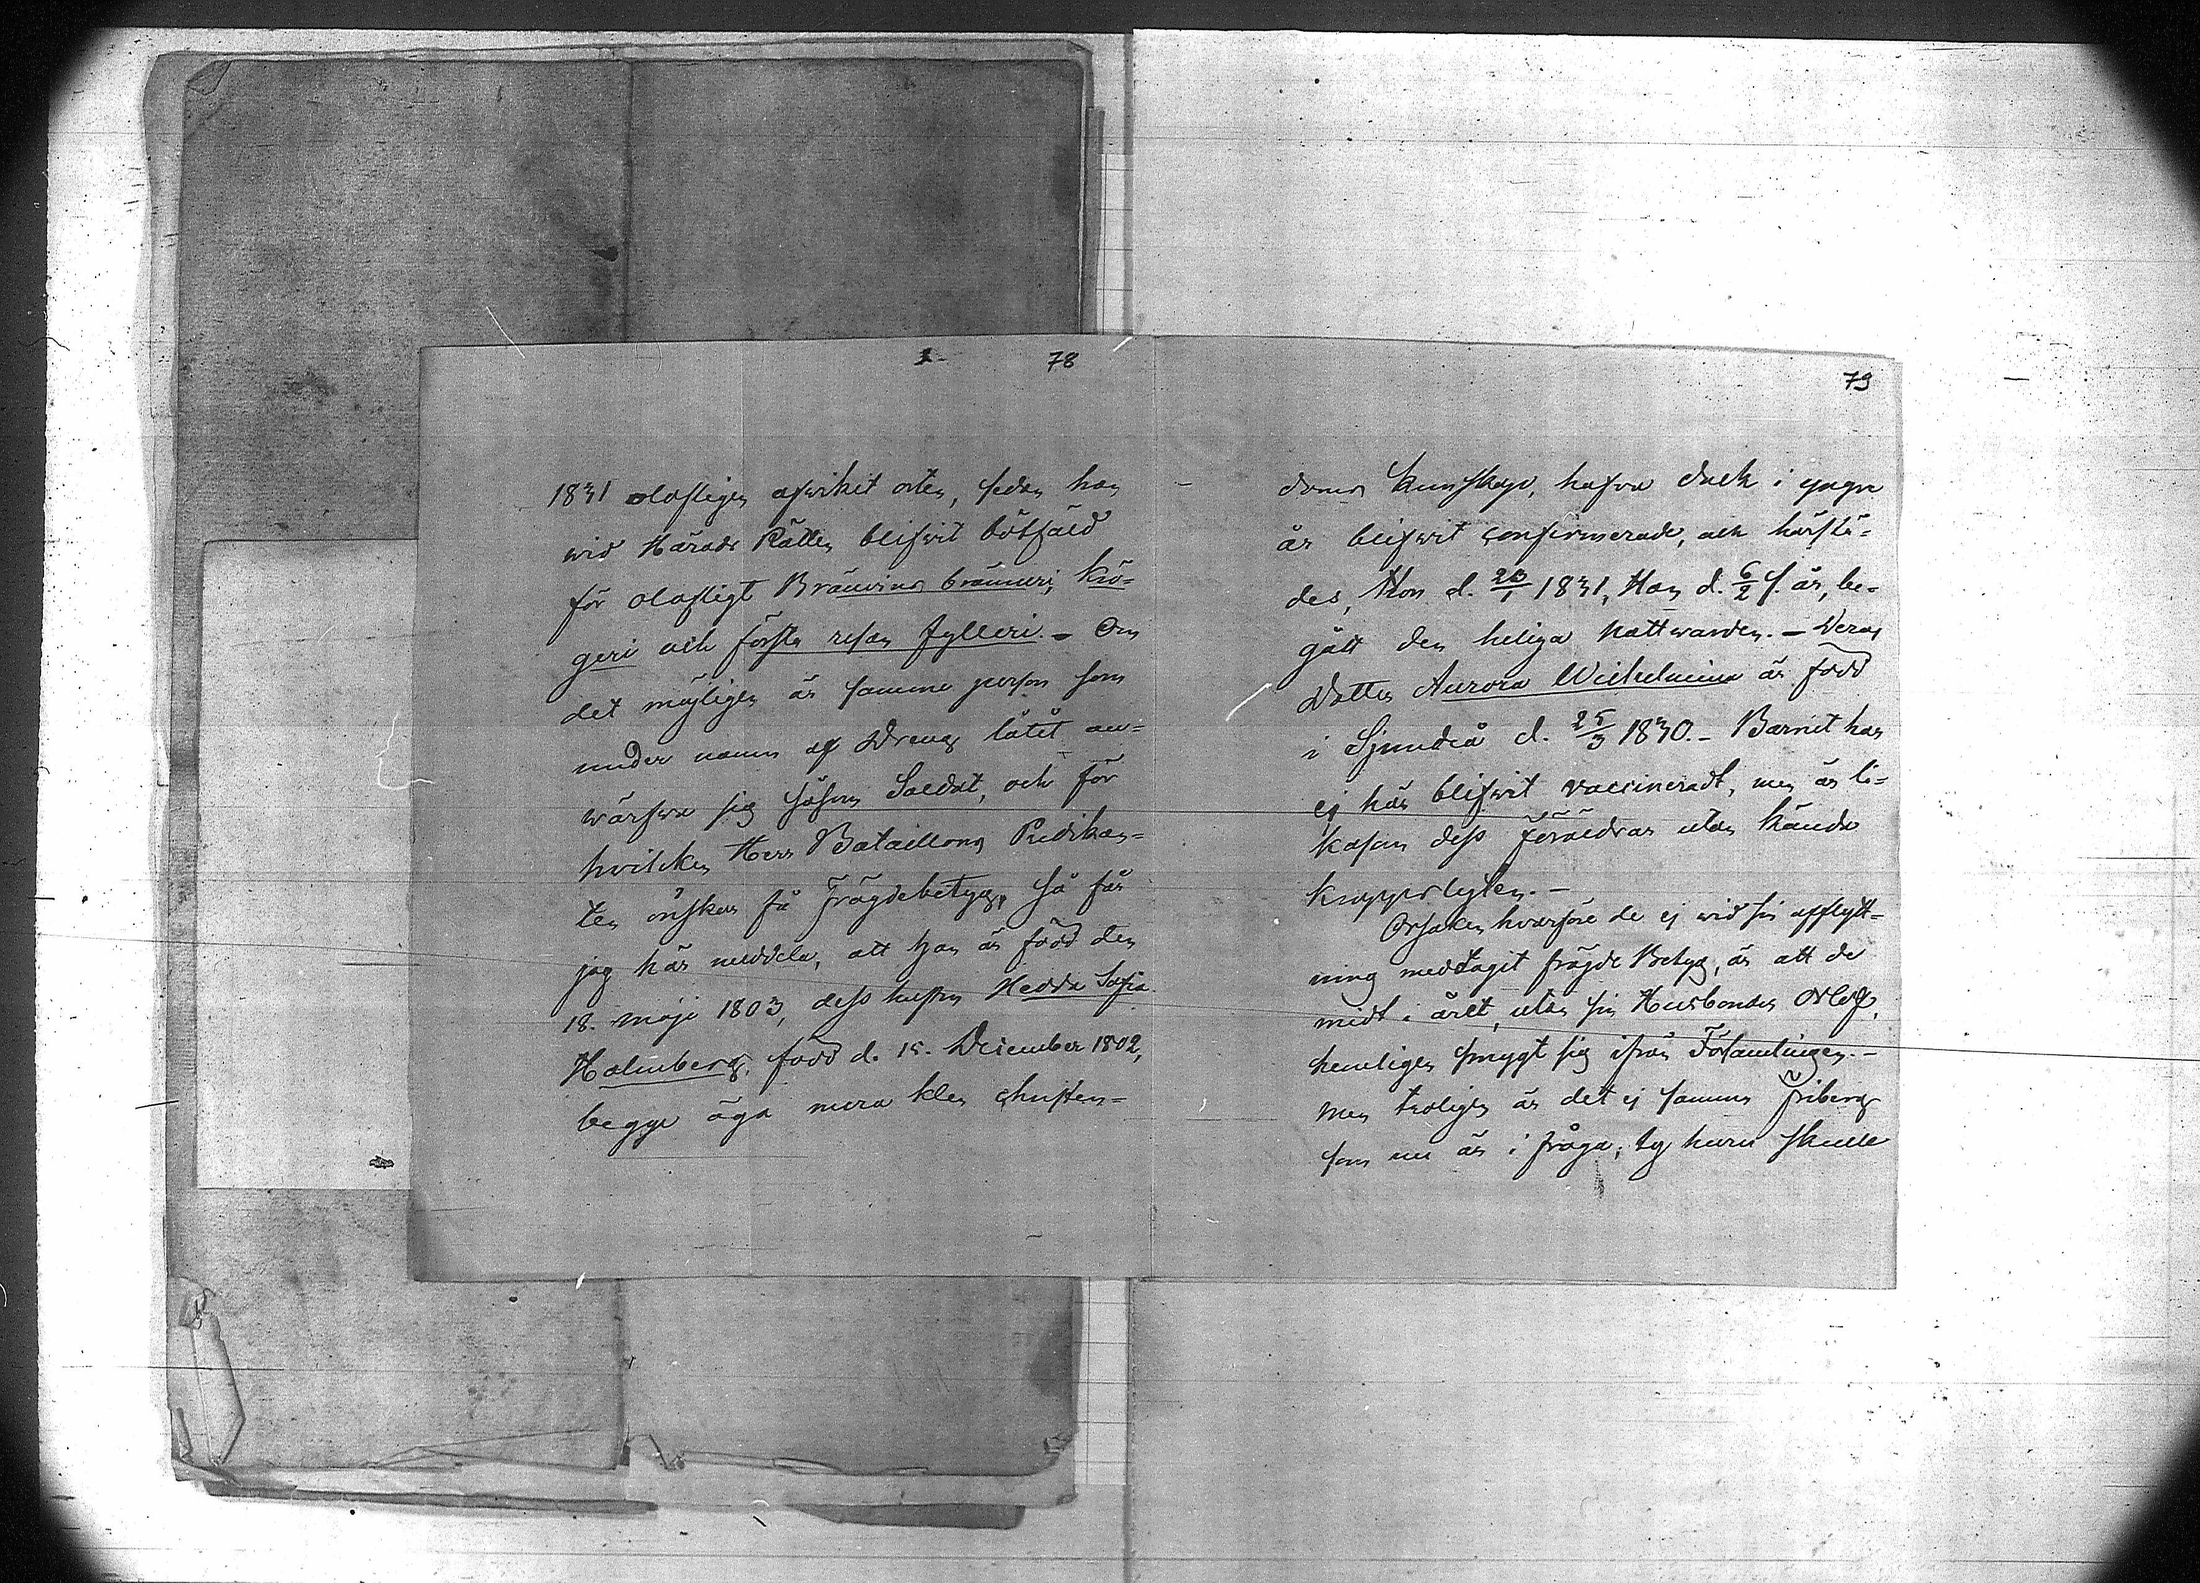 78
1831 olofligen afvikit orten, sedan han
wid Härads Rätten blifvit bötfäld
för olofligt Bränvins bränneri, krö-
geri och första resan fylleri. - Om
det möjligen är samma person som
under namn af Dreng låtit an-
wärfva sig såsom Soldat, och för
hvilcken Herr Bataillons Predikan-
ten önskar få Frägdebetyg, så får
jag här meddela, att han är född den
18. maji 1803, dess hustru Hedda Sofia
Holmberg, född d. 15. December 1802,
begge äga mera klen christen-
79
doms kunskap, hafva dock i yngre
år blifvit confirmerade, och härstä-
des, Hon d. 23/1 1831, Han d. 6/2 s. år, be-
gått den heliga nattwarden. - Deras
Dotter Aurora Wilhelmina är född
i Sjundeå d. 25/3 1830. - Barnet har
ej här blifvit vaccineradt, men är li-
kasom dess föräldrar utan kända
kroppslyten. -
Orsaken hvarföre de ej wid sin afflytt-
ning medtagit frägde Betyg, är att de
midt i året, utan sin Husbondes orlof,
hemligen smygt sig ifrån Församlingen. -
Men troligen är det ej samma Friberg
som nu är i fråga; ty huru skulle